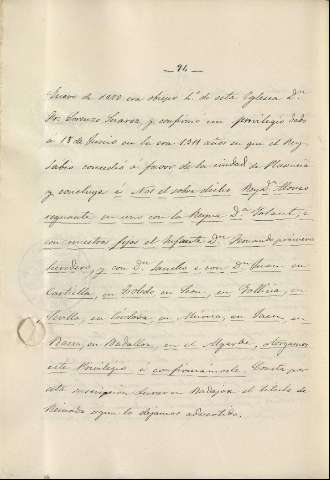 — 94 —
Enero de 1280 era obispo 2º de esta Iglesia Dn.
Fr. Lorenzo Suarez, y confirmó un privilegio dado
a 18 de Junio en la era 1311 años en que el Rey
Sabio concedió á favor de la ciudad de Plasencia
y concluye é Nos el sobre dicho Rey Dn. Alonso
regnante en uno con la Reyna Dª. Yolant, é
con nuestros fijos el Infante Dn. Fernando primero
heredero, y con Dn. Sancho é con Dn. Juan en
Castilla, en Toledo en Leon, en Gallicia, en
Sevilla, en Cordova, en Murcia, en Jaen, en
Baeza, en Badalloz, en el Algarbe, otorgamos
este Privilegio é confirmamosle. Consta por
esta suscripcion tener en Badajoz el titulo de
Reinado segun lo dejamos advertido.